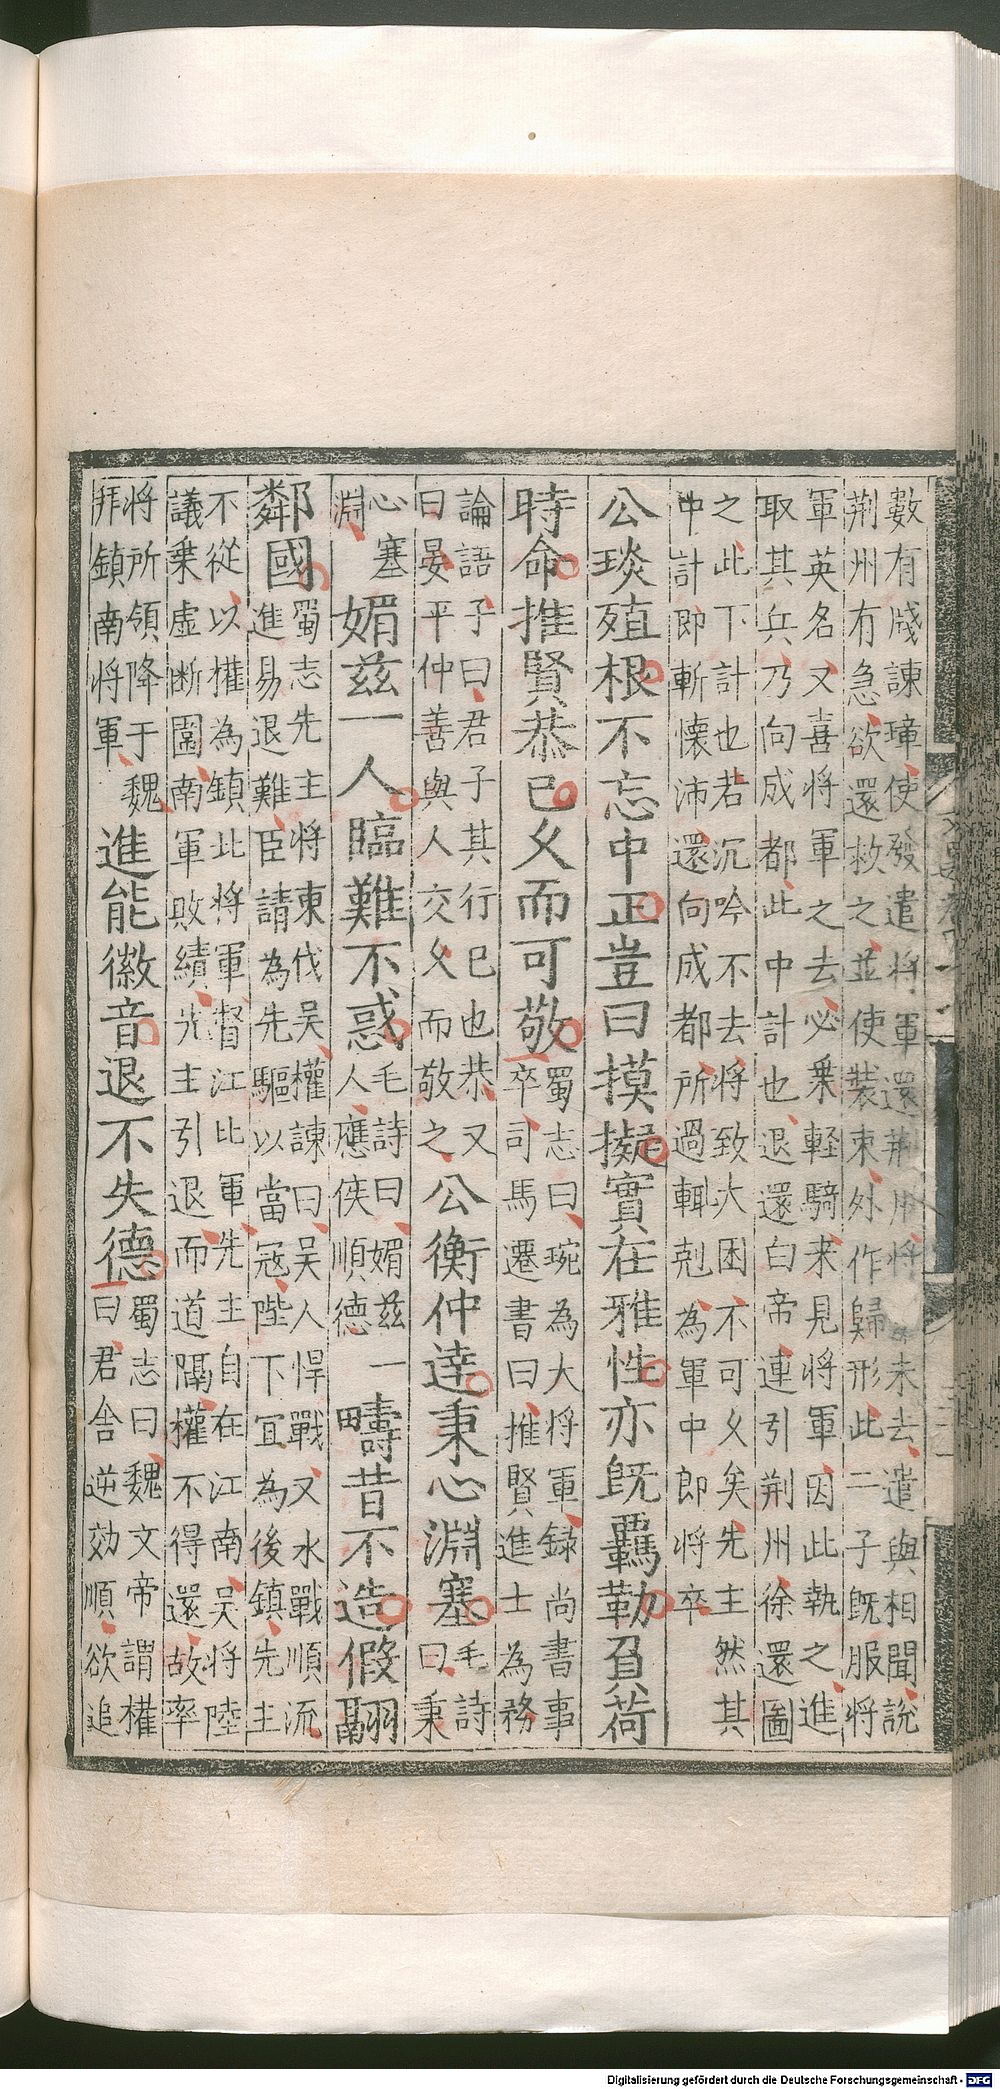 數有牋諫璋使發遣将軍還荆州将未去遣與相聞說
荆州有急欲還救之並使裝束外作歸形此二子旣服将
軍英名又喜将軍之去必乗軽騎来見将軍因此執之進
取其兵乃向成都此中計也退還白帝連引荆州徐還圖
之此下計也若沉吟不去将致大困不可乆矣先主然其
中計即斬懐沛還向成都所過輒剋為軍中郎将卒
公琰殖根不忘中正豈曰摸擬實在雅性亦旣羈勒負荷
時命推賢恭已乆而可敬
蜀志曰琬為大将軍録尚書事
卒司馬遷書曰推賢進士為務
論語子曰君子其行已也恭又
曰晏平仲善與人交乆而敬之
公衡仲逹秉心淵塞
毛詩曰秉
心塞
淵
媚茲一人臨難不惑
毛詩曰媚茲一
人應侯順德
疇昔不造假翮
鄰國
蜀志先主将東伐吴權諫曰吴人悍戰又水戰順流
進易退難臣請為先驅以當冦陛下宜為後鎮先主
不從以權為鎮北将軍督江北軍先主自在江南吴将陸
議乗虛斷圍南軍敗績先主引退而道隔權不得還故率
将所領降于魏
拜鎮南将軍
進能徽音退不失德
蜀志曰魏文帝謂權
曰君舎逆効順欲追
Digitalisierung gefördert durch die Deutsche Forschungsgemeinschaft - DFG